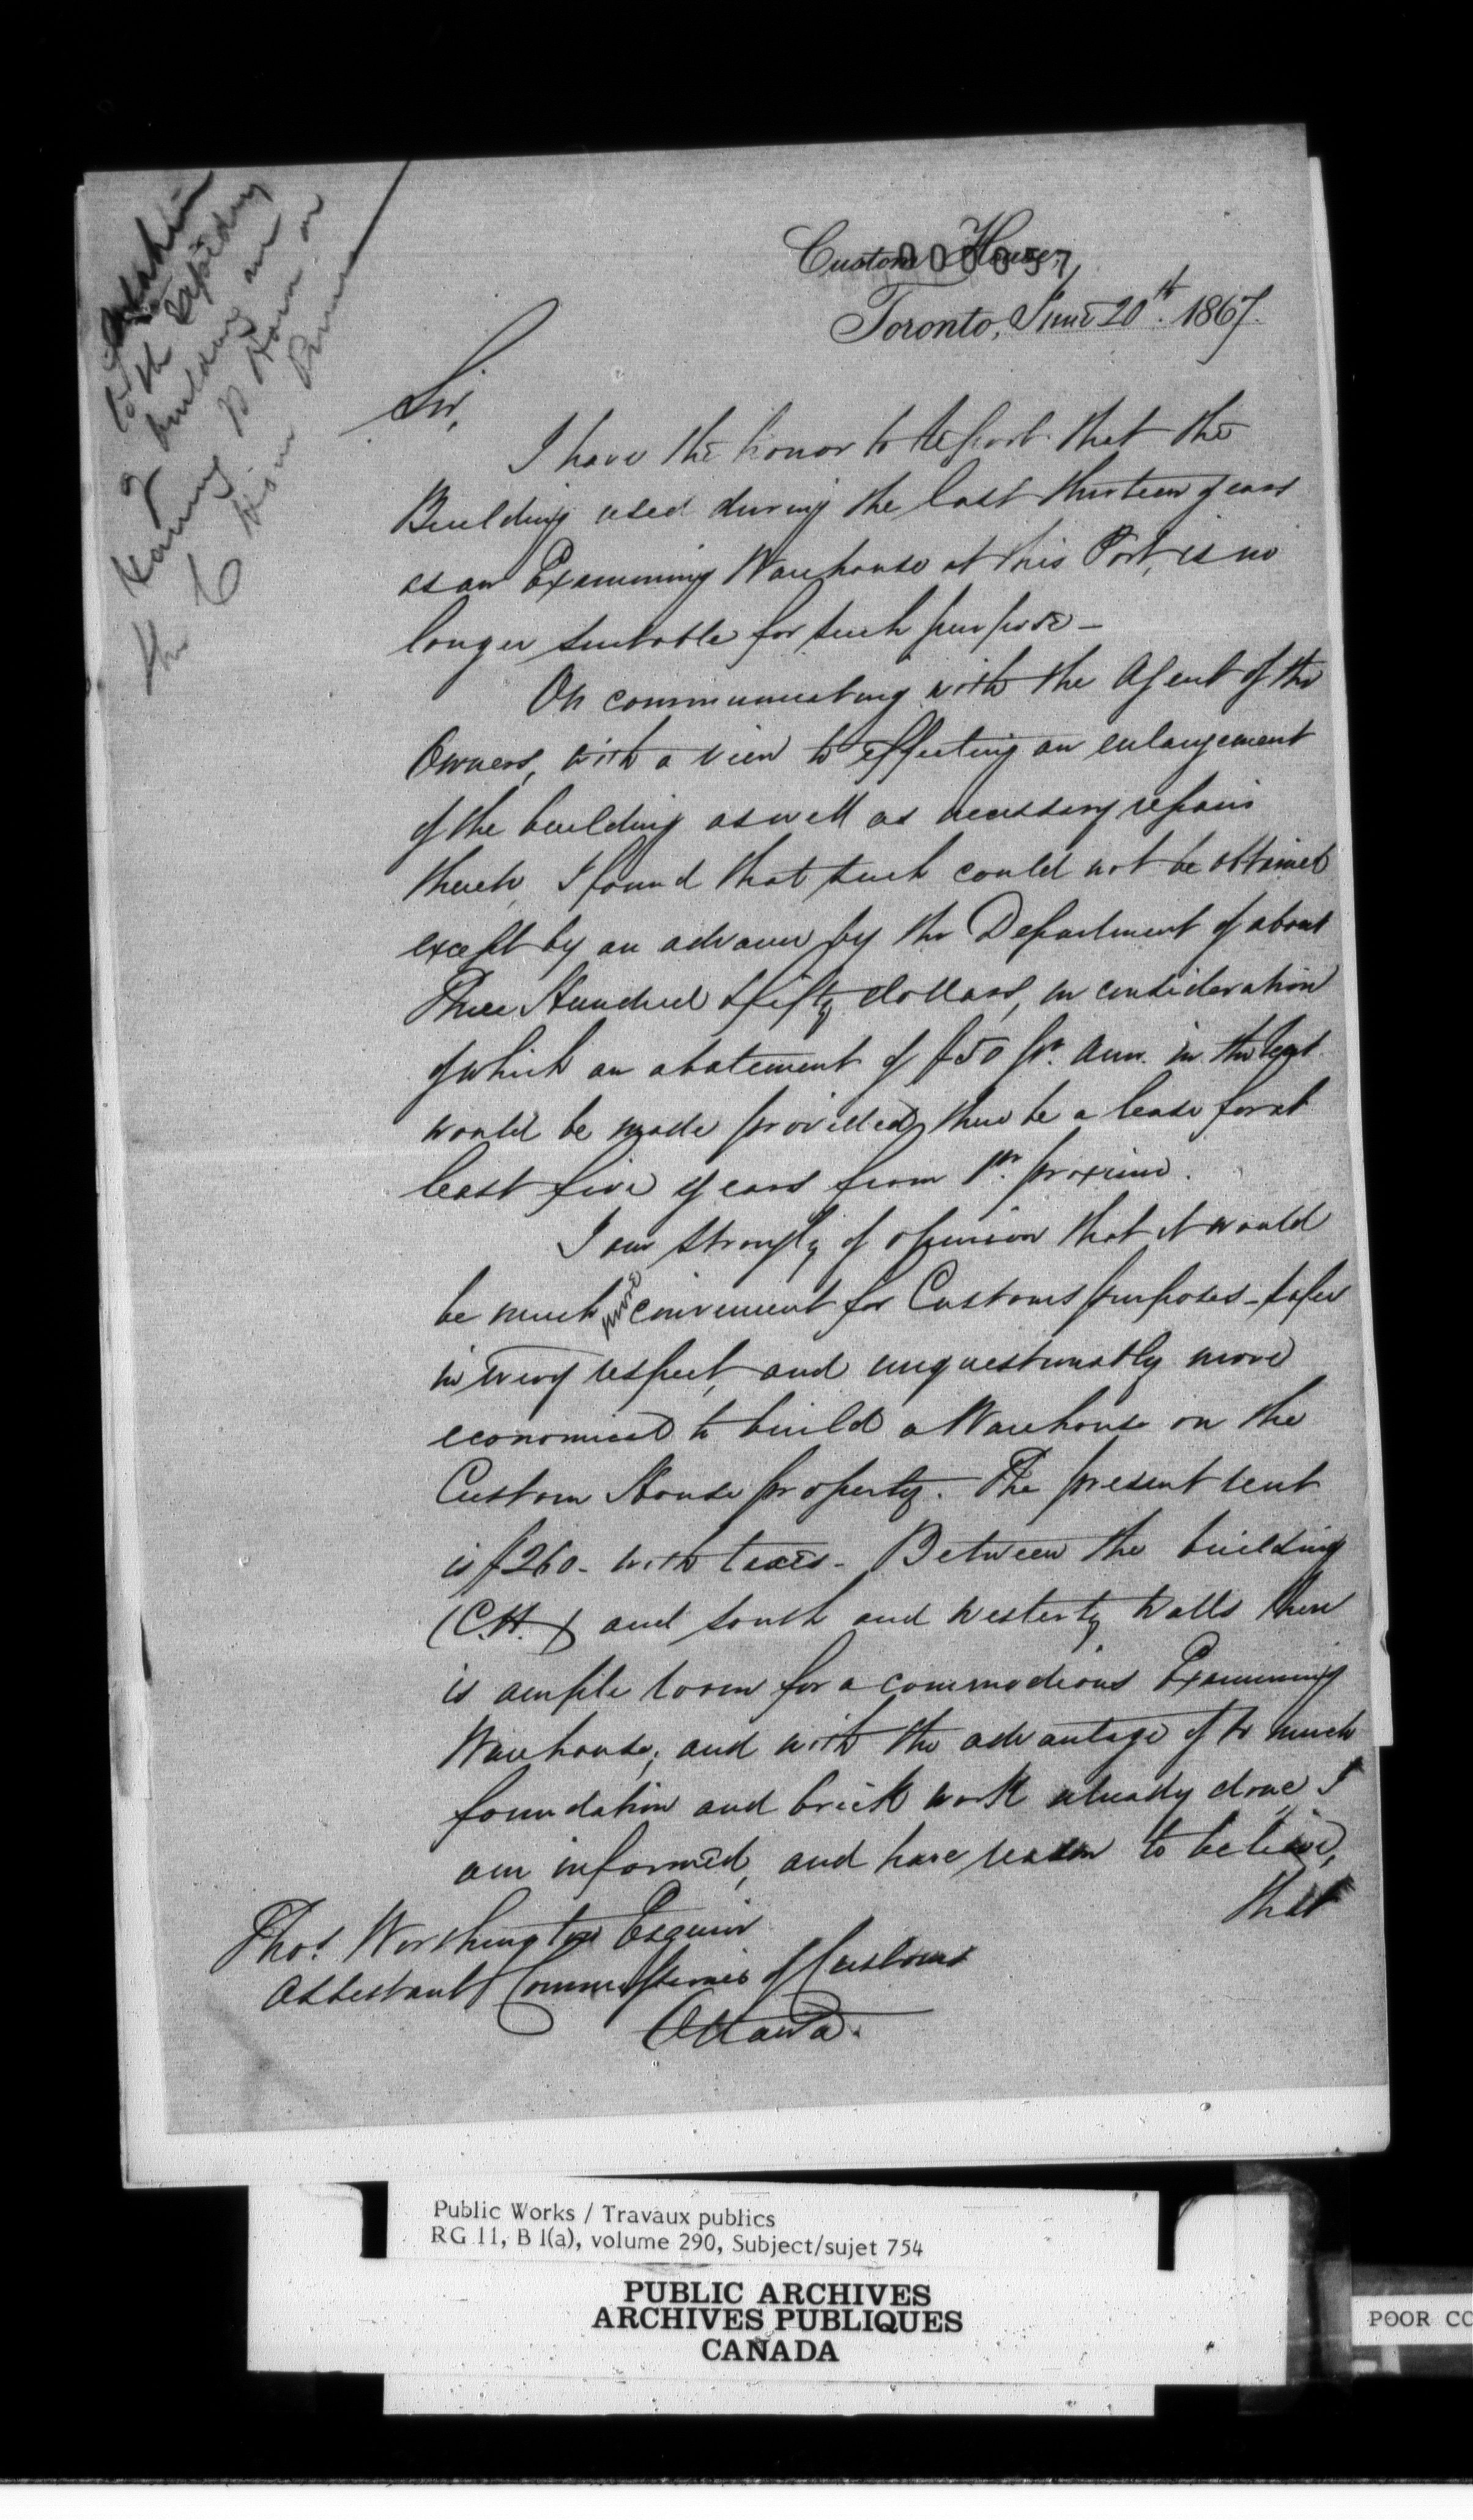 to the expediency
of building an
000057
Custom House,
Toronto, June 20th. 1867.
Sir,
I have the honor to report that the
Building used during the last thirteen years
as an Examining Warehouse at this Port, is no
longer suitable for such purpose -
On communicating with the Agent of the
Owners, with a view to effecting an enlargement
of the building as well as necessary repairs
thereto, I found that such could not be obtained
except by an advance by the Department of about
Three Hundred & fifty dollars, in consideration
of which an abatement of £50 pr. Ann. in the
would be made provided there be a lease for at
least five years from 1st. proximo.
I am strongly of opinion that it would
be much more convenient for Customs purposes - safer
in every respect, and unquestionably more
economical to build a Warehouse on the
Custom House property. The present rent
is £260 - with taxes - Between the building
(C.H.) and south and westerly walls there
is ample room for a commodious Examining
Warehouse; and with the advantage of so much
foundation and brick work already done, I
am informed, and have reason to believe,
that
Thos. Worthington Esquire
Assistant Commissioner of Customs
Ottawa.
Public Works / Travaux publics
RG 11, B 1(a), volume 290, Subject/sujet 754
PUBLIC ARCHIVES
ARCHIVES PUBLIQUES
CANADA
POOR CO